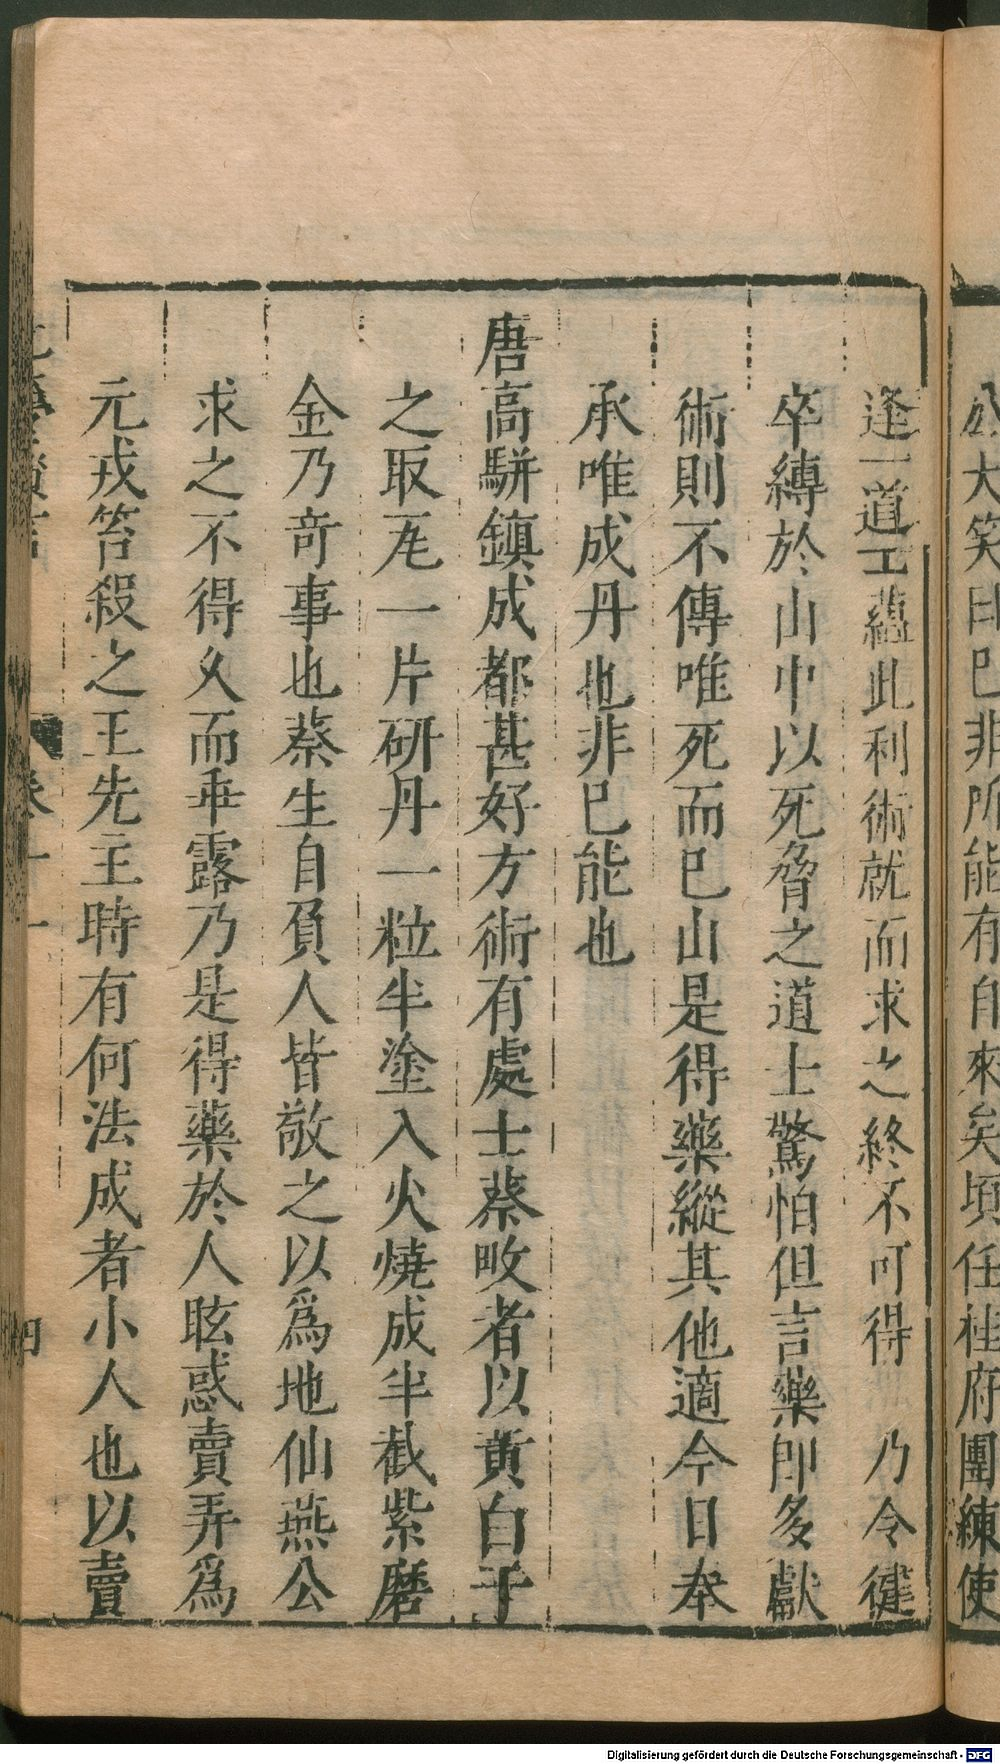 公大笑曰已非所能有自來矣頃任桂府團練使
逢一道工蘊此利術就而求之終不可得 乃令健
卒縛於山中以死脅之道士驚怕但言藥即多獻
術則不傳唯死而已山是得藥縱其他適今日奉
承唯成丹也非已能也
唐高駢鎮成都甚好方術有處士蔡畋者以黃白干
之取瓦一片研丹一粒半塗入火燒成半截紫磨
金乃奇事也蔡生自負人皆敬之以爲地仙燕公
求之不得久而乖露乃是得藥於人眩惑賣弄爲
元戎笞殺之王先主時有何法成者小人也以賣
卷十一
四
Digitalisierung gefördert durch die Deutsche Forschungsgemeinschaft - DFG